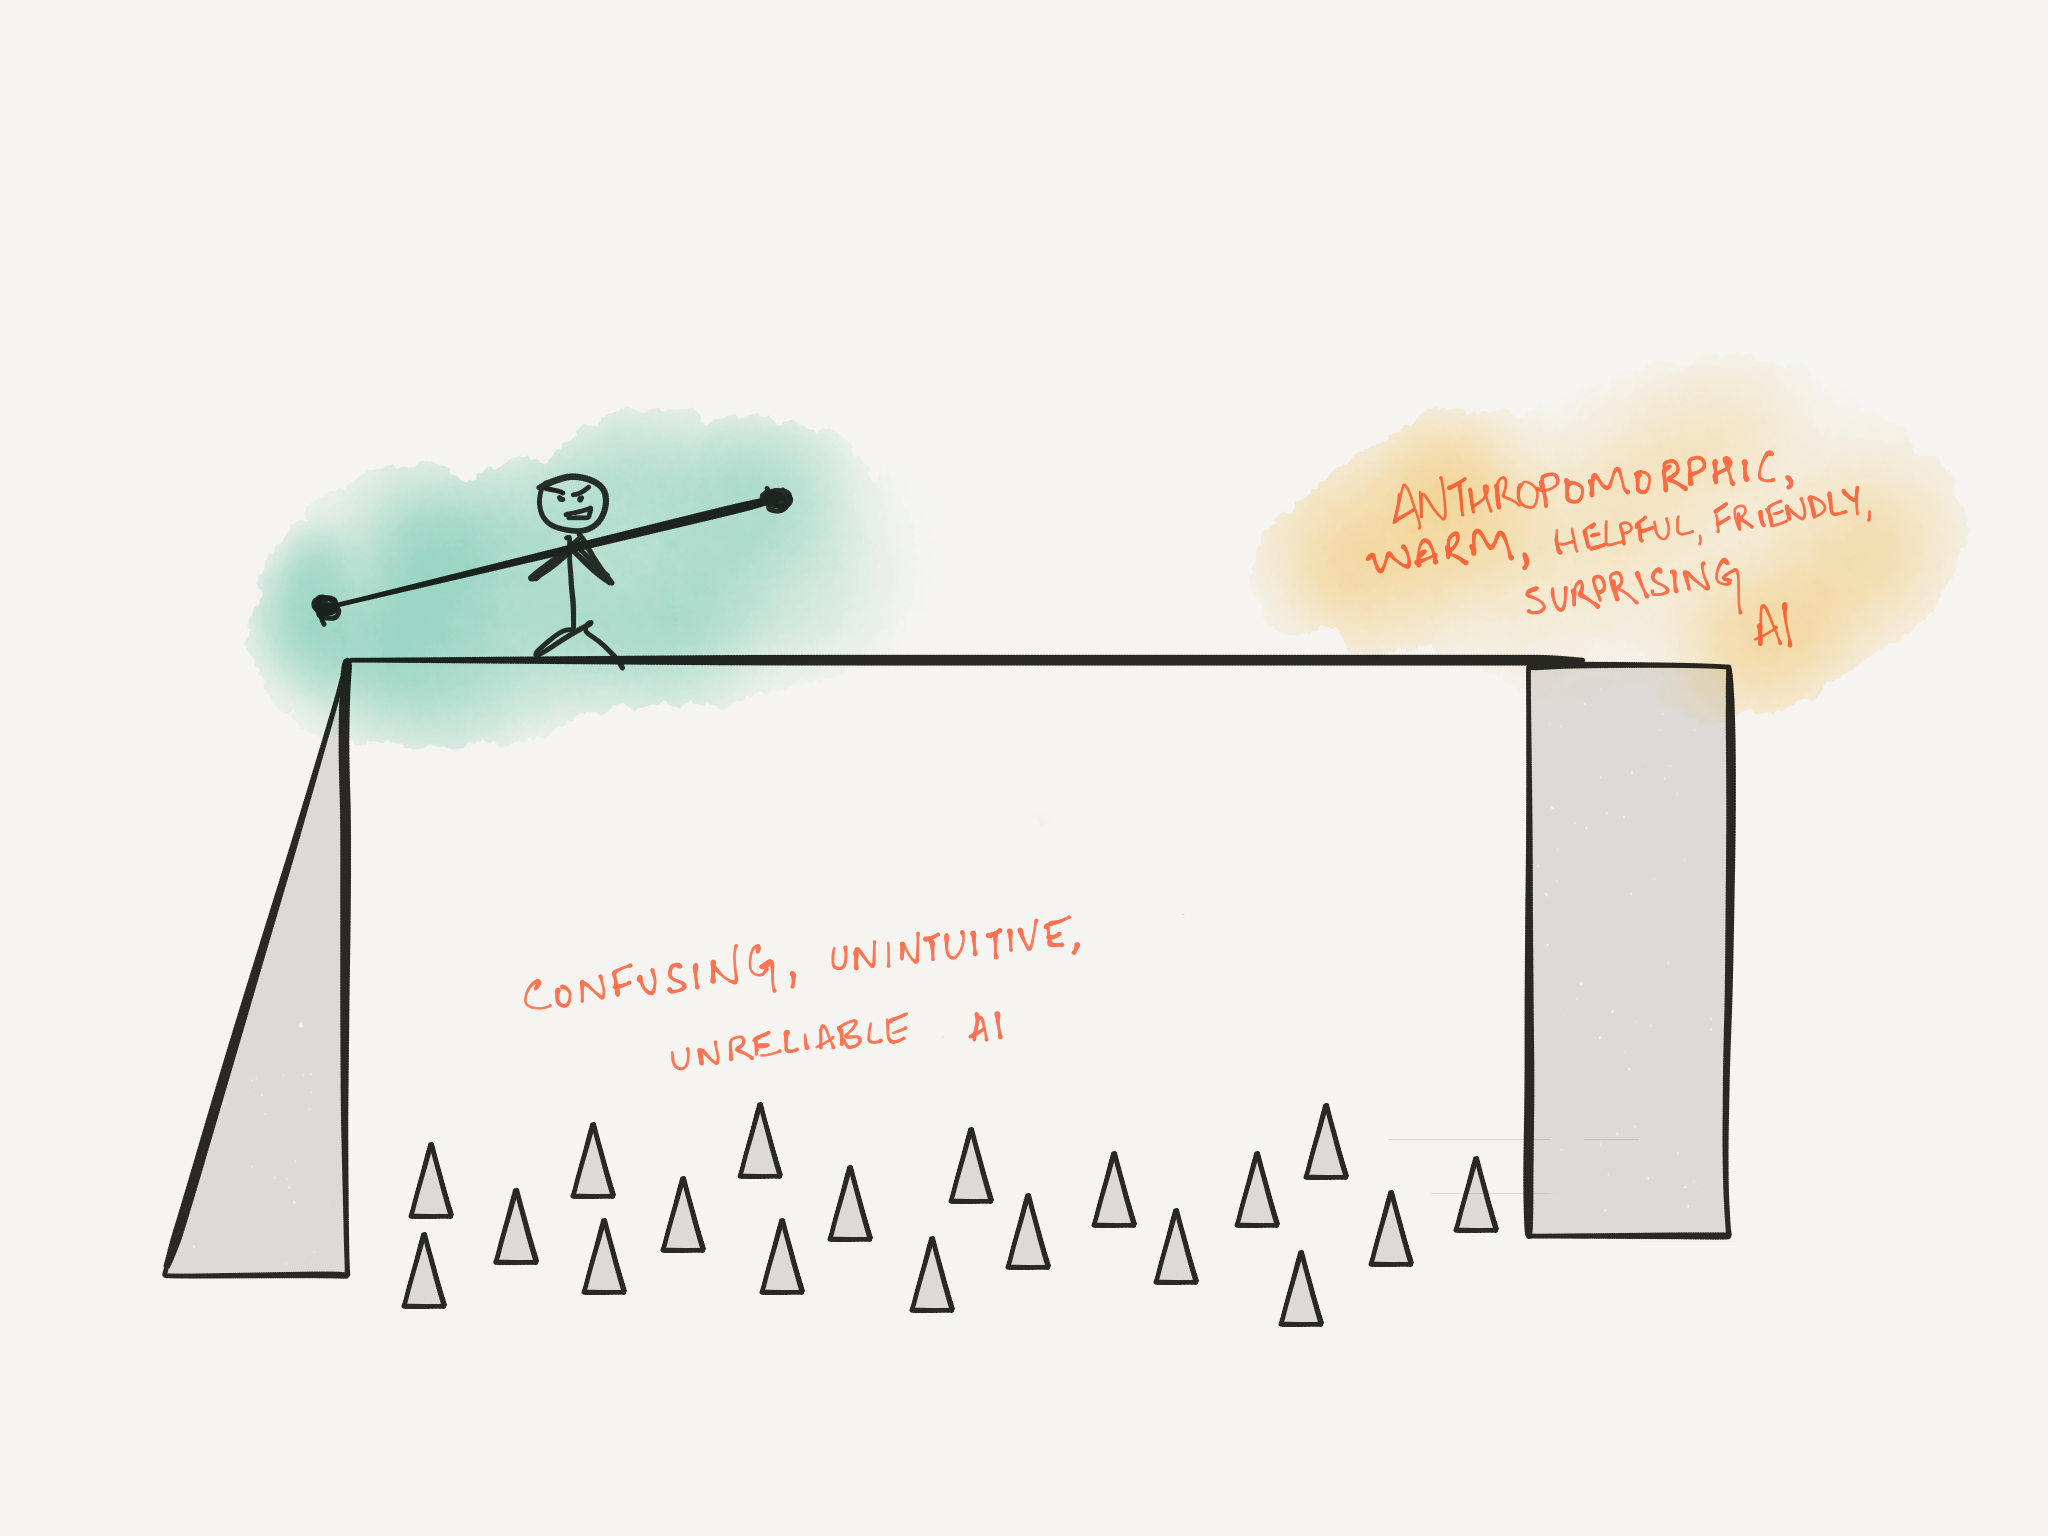 ANTHROPOMORPHIC,
WARM, HELPFUL, FRIENDLY,
SURPRISING
AI
CONFUSING, UNINTUITIVE,
UNRELIABLE AI